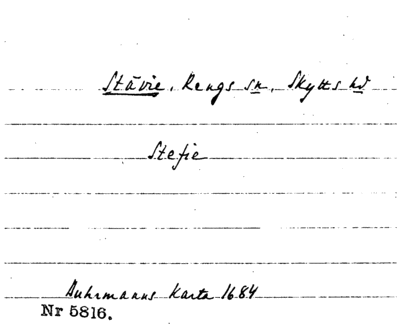 Stävie, Rengs sn, Skytts hd
Stefie
Buhrmanns Karta 1684
Nr 5816.